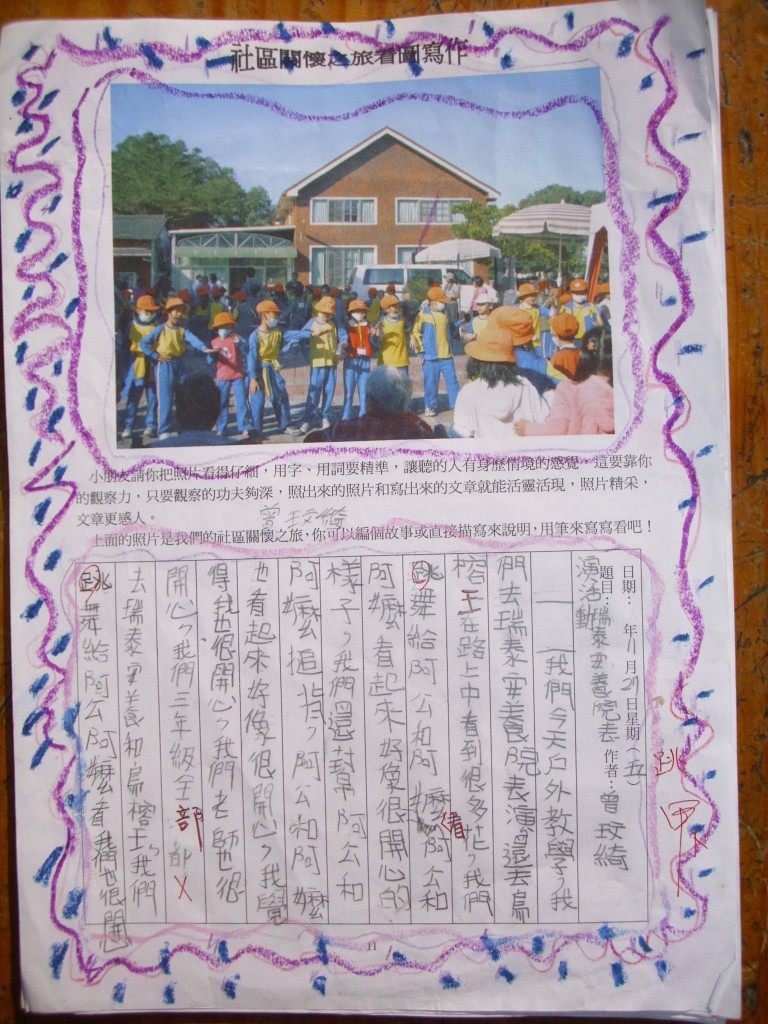 社區關懷之旅看圖寫作
小朋友請你把照片看得仔細，用字、用詞要精準，讓聽的人有身歷情境的感覺，這要靠你
的觀察力，只要觀察的功夫夠深，照出來的照片和寫出來的文章就能活靈活現，照片精采，
文章更感人。
曾玟綺
上面的照片是我們的社區關懷之旅，你可以編個故事或直接描寫來說明，用筆來寫寫看吧！
日期： 年11月27日星期（五）
題目：瑞泰安養院表演活動
作者：曾玟綺
我們今天戶外教學，我
們去瑞泰安養院表演還去烏
榕王在路上中看到很多花，我們
跳舞給阿公和阿嬤看阿公和
阿嬤看起來好像很開心的
樣子，我們還幫阿公和
阿嬤搥背，阿公和阿嬤
也看起來好像很開心，我覺
得我也很開心，我們老師也很
開心，我們三年級全部
去瑞泰安養和烏榕王，我們
跳舞給阿公阿嬤看我們也很開
跳
甲
11